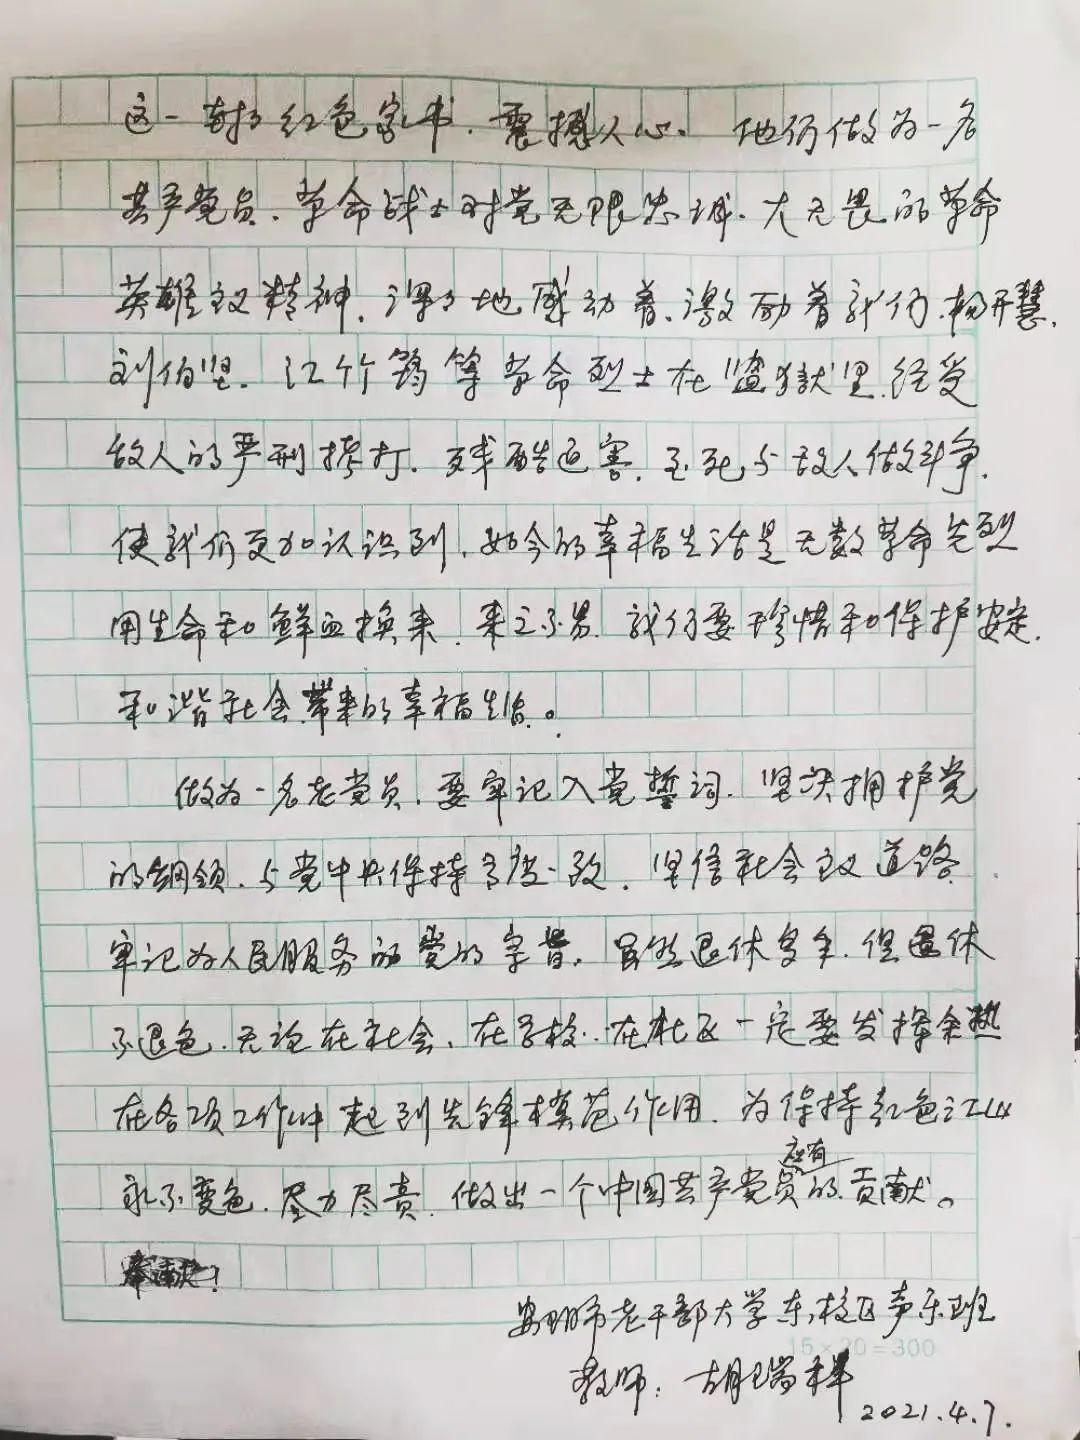 这一封封红色家书，震撼人心。他们做为一名
共产党员、革命战士对党无限忠诚、大无畏的革命
英雄主义精神，深深地感动着、激励着我们，杨开慧、
刘伯坚、江竹筠等革命烈士在监狱里，经受
敌人的严刑拷打、残酷迫害，至死与敌人做斗争，
使我们更加认识到，如今的幸福生活是无数革命先烈
用生命和鲜血换来，来之不易，我们要珍惜和保护安定、
和谐社会带来的幸福生活。
做为一名老党员，要牢记入党誓词，坚决拥护党
的纲领，与党中央保持高度一致，坚信社会主义道路
牢记为人民服务的党的宗旨，虽然退休多年，但退休
不退色，无论在社会、在学校、在社区一定要发挥余热
在各项工作中起到先锋模范作用，为保持红色江山
永不变色，尽力尽责，做出一个中国共产党员应有的贡献。
市老干部大学东校区声乐班
15×20=300
教师：胡瑞祥
2021.4.7.